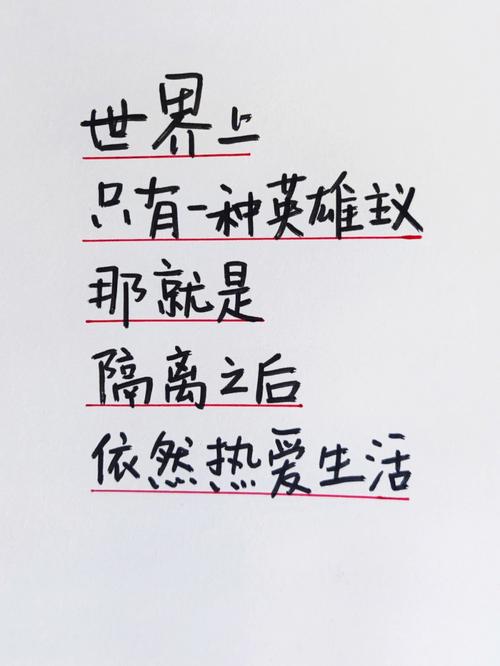 世界上
只有一种英雄主义
那就是
隔离之后
依然热爱生活